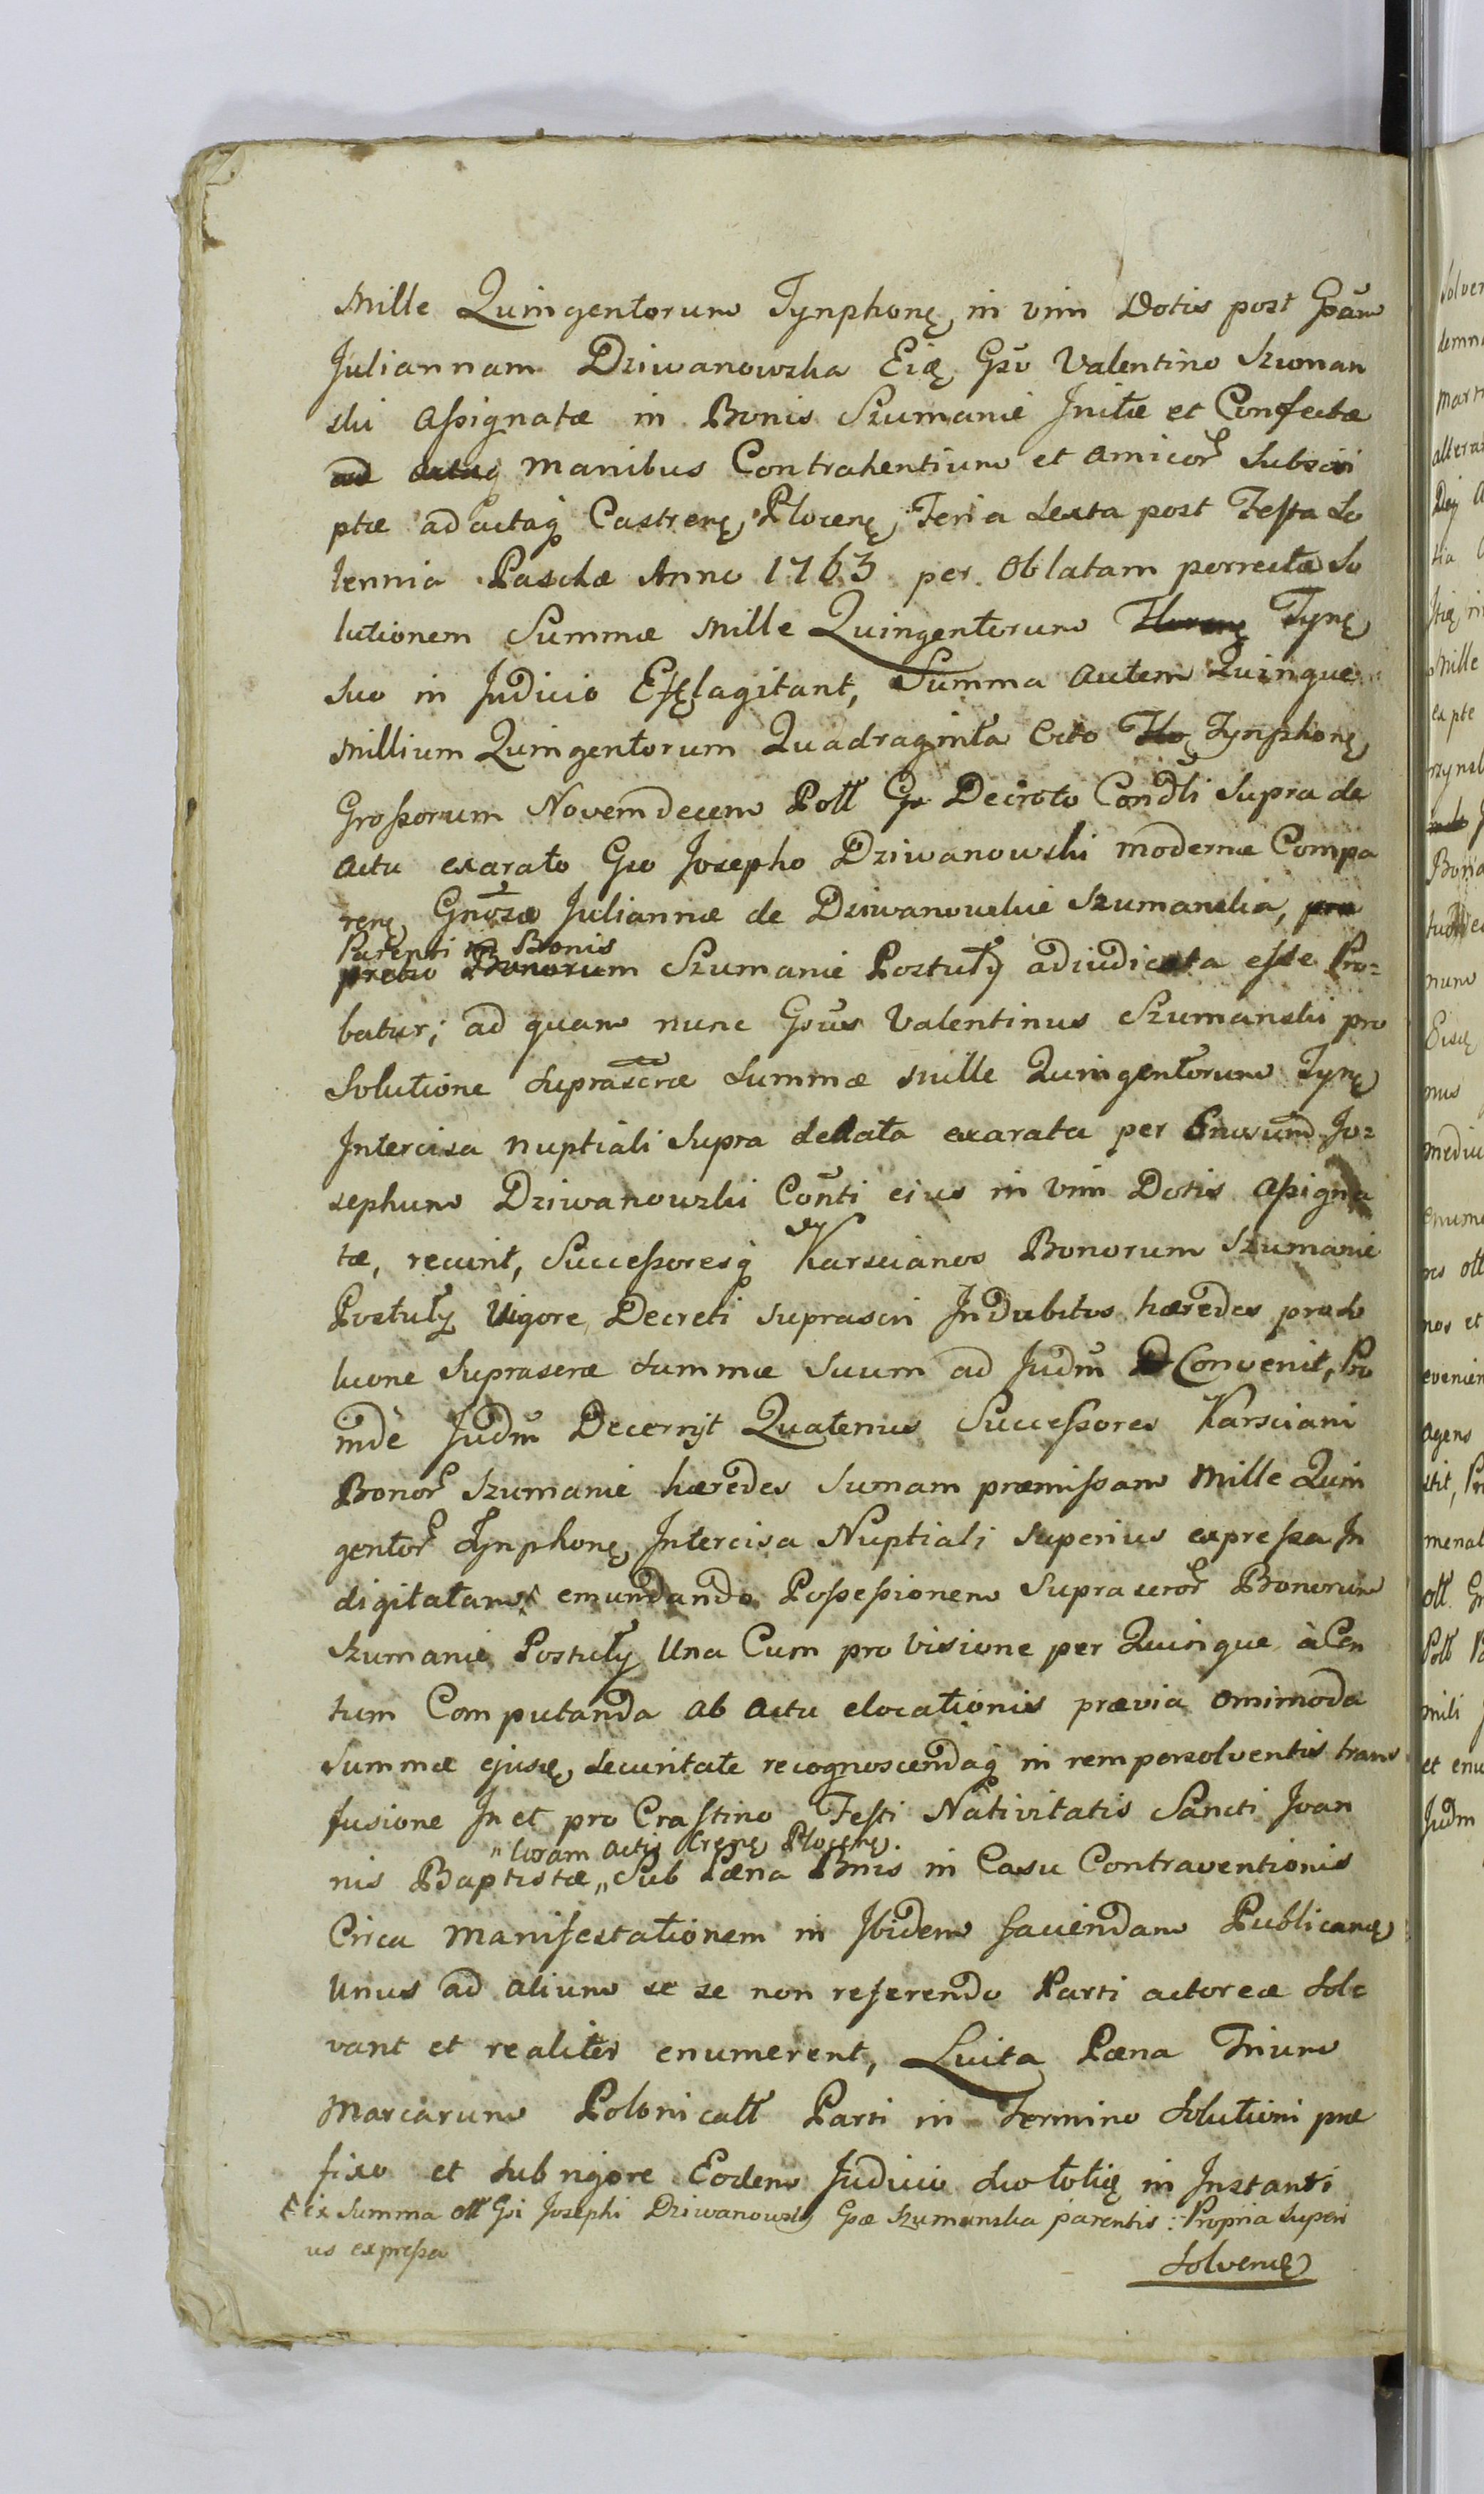 Mille Quingentorum Tynphonę, in vim Dotis post Gsam
Juliannam Dziwanowska Eię, Gso Valentino Szuman
ski Assignatæ in Bonis Szumanie Initæ et Confectæ
ad actaq manibus Contrahentium et amicor Subscri
ptæ ad actaq Castrenę, Plocenę, Feria Sexta post Festa So
lennia Paschæ Anno 1763 per Oblatam porrectæ So
lutionem Summæ Mille Quingentorum Florenę Tynę
suo in Judicio Efflagitant, Summa autem Quinque
Millium Quingentorum Quadraginta Octo Flo, Tynphonę,
Grossorum Novemdecem Poll Gr Decreto Condli Supra de
actu exarato Gso Josepho Dziwanowski modernæ Compa
renę, Gnosæ Juliannæ de Dziwanowskie Szumanska, pro
Parenti in Bonis
pretio Bonorum Szumanie Postuły adiudicata esse Pro=
batur; ad quam nunc Gsus Valentinus Szumanski pro
Solutione suprascræ summæ Mille Quingentorum Tynę
Intercisa nuptiali Supra dedata exarata per Jo=
sephum Dziwanowski Conti eius in vim Dotis Assigna
tæ, recurit, Successoresq Karscianos Bonorum Szumanie
Postuły Vigore Decreti suprascri Indubitos hæredes pro so
luone Suprascræ summæ Suum ad Judm Convenit, Pro
indè Judm Decernit Quatenus Successores Karsciani
Bonor Szumanie hæredes Sumam præmissam Mille Quin
gentor Tynphonę, Intercisa Nuptiali Superius expressa In
digitatam emundando Possessionem Suprascror Bonorum
Szumanie Postuły Una Cum provisione per Quinque à Cen
tum Computanda ab actu elocationis prævia omimoda
Summæ ejusę, Securitate recognoscendaq in rem persolventis trans
fusione In et pro Crastino Festi Nativitatis Sancti Joan
" Coram Actis Crenę Plocenę.
nis Baptistæ „ Sub Pæna Bnis in Casu Contraventionis
Circa Manifestationem in Ibidem faciendam Publicanę
Unus ad alium se se non referendo Parti actoreæ Sol
vant et realiter enumerent, Luita Pæna Trium
Marcarum Polonicall Parti in Termino Solutioni præ
fixo et sub rigore Eodem Judicio suo totię in Instanti
ex Summa oll Gsi Josephi Dziwanowski Gsæ Szumanska parentis: Propria Superi
us expressa
Solvenę